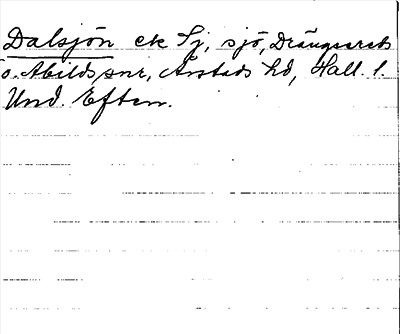 Dalsjön ek Sj, sjö, Drängsereds
o. Abilds snr, Årstads hd, Hall. l.
Und. Eftem.